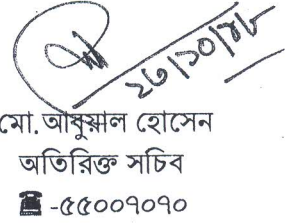 ২৩/১০/১৮
মো. আবুয়াল হোসেন
অতিরিক্ত সচিব
☎ -৫৫০০৭০৭০